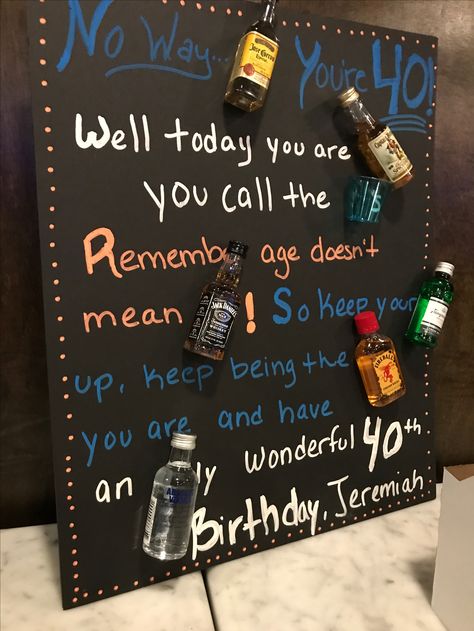 No Way... You're 40!
Well today you are
you call the
Remembe age doesn't
mean ! So keep your
up, keep being the
you are and have
an ly wonderful 40th
Birthday, Jeremiah
Jose Cuervo
JACK DANIEL'S
FIREBALL